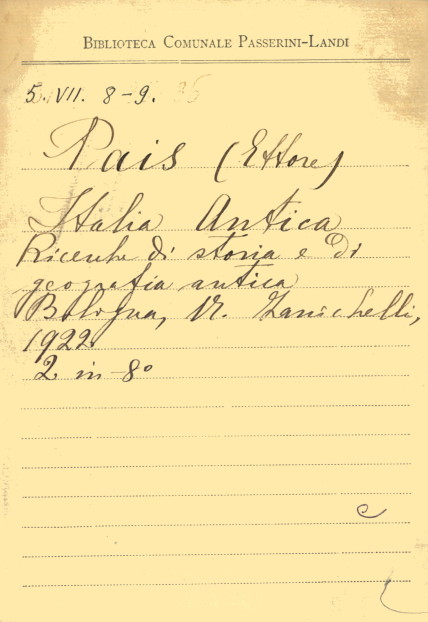 BIBLIOTECA COMUNALE PASSERINI-LANDI
5. VII. 8-9.
Pais (Ettore)
Italia Antica
Ricerche di storia e di
geografia antica
Bologna, N. Zanichelli,
1922
2 in 8º
e